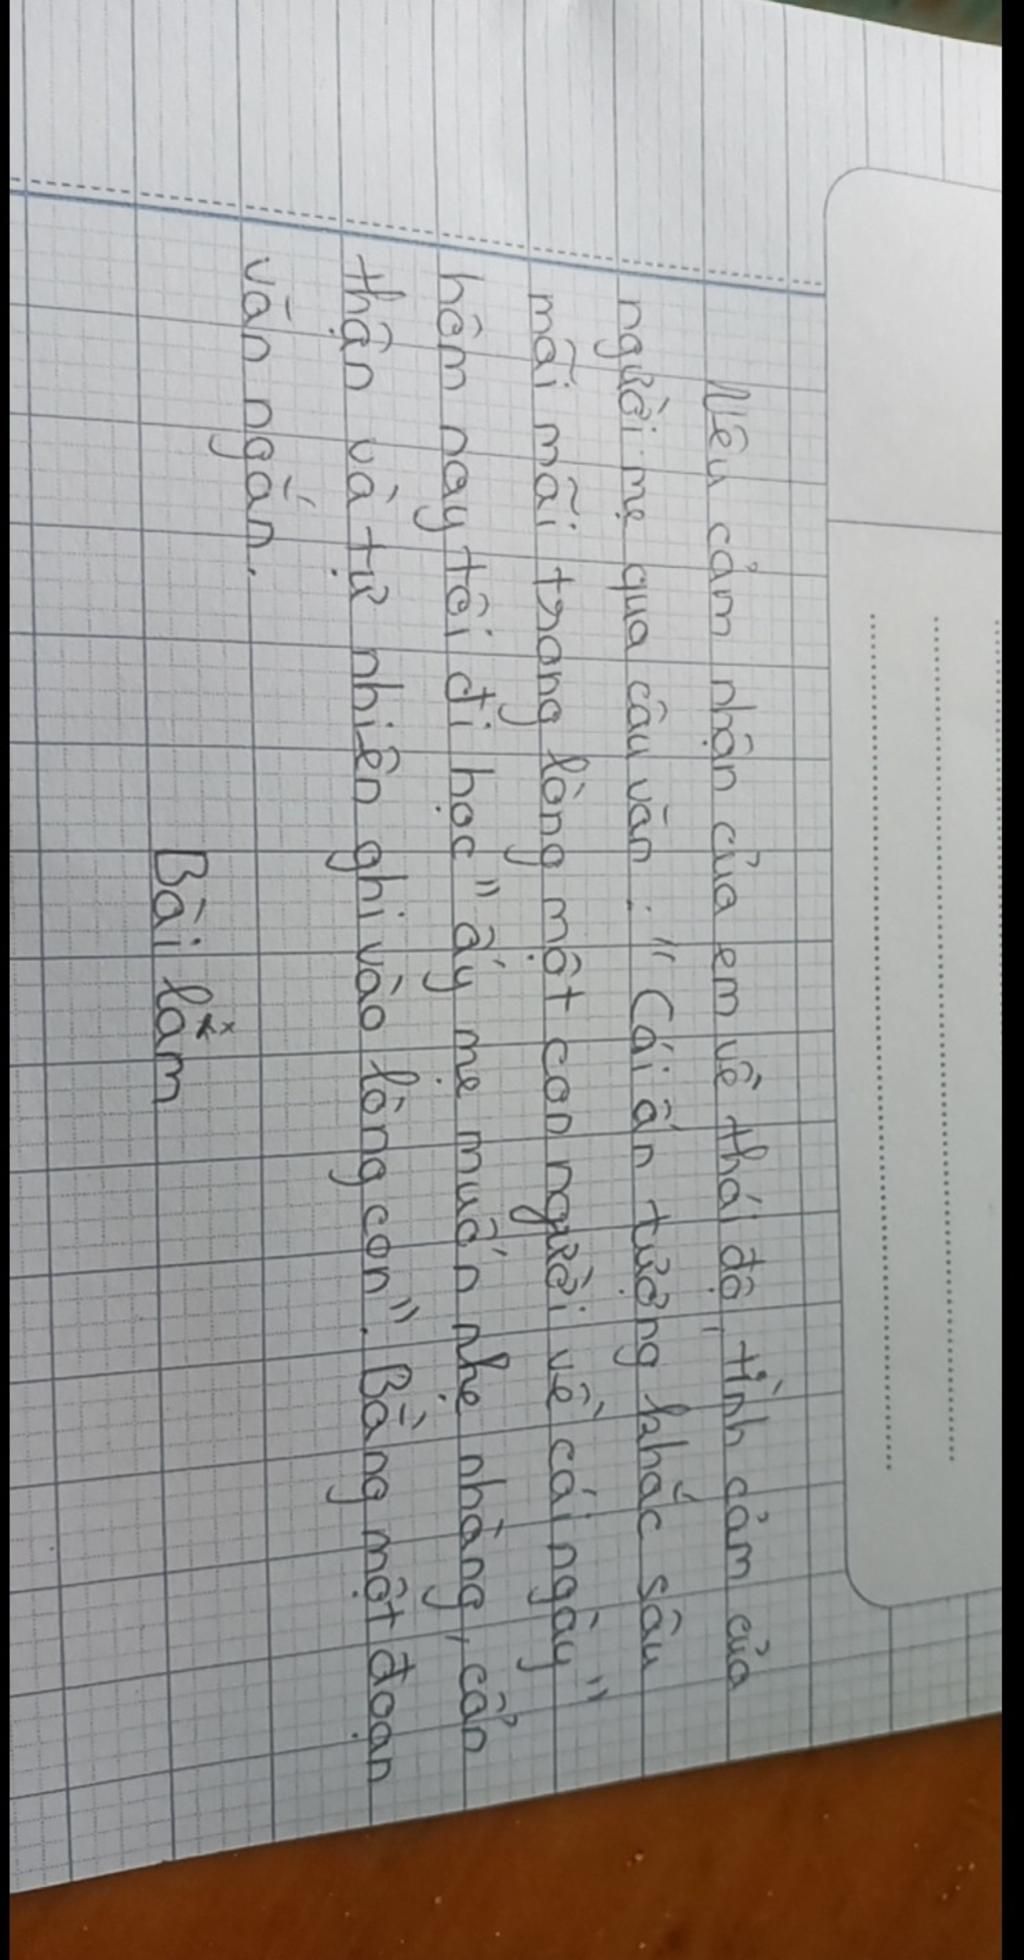 Nêu cảm nhận của em về thái độ, tình cảm của
người mẹ qua câu văn: "Cái ấn tượng khắc sâu
mãi mãi trong lòng một con người về cái ngày"
hôm nay tôi đi học" ấy mẹ muốn nhẹ nhàng, cẩn
thận và tự nhiên ghi vào lòng con". Bằng một đoạn
văn ngắn.
Bài làm